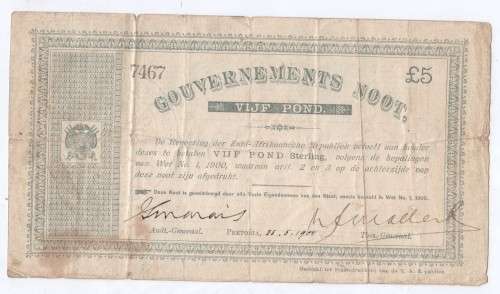 7467
£5
GOUVERNEMENTS NOOT,
VIJF POND.
De Regeering der Zuid-Afrikaansche Republiek beveelt aan houder
dezes te betalen VIJF POND Sterling, volgens de bepalingen
van Wet No. 1, 1900, waarvan art. 2 en 3 op de achterzijde van
deze noot zijn afgedrukt.
Deze Noot is gewaarborgd door alle Vaste Eigendommen van den Staat, zooals bepaald in Wet No. 1, 1900.
Audt.-Generaal.
PRETORIA 28.5.1900
Thes.-Generaal.